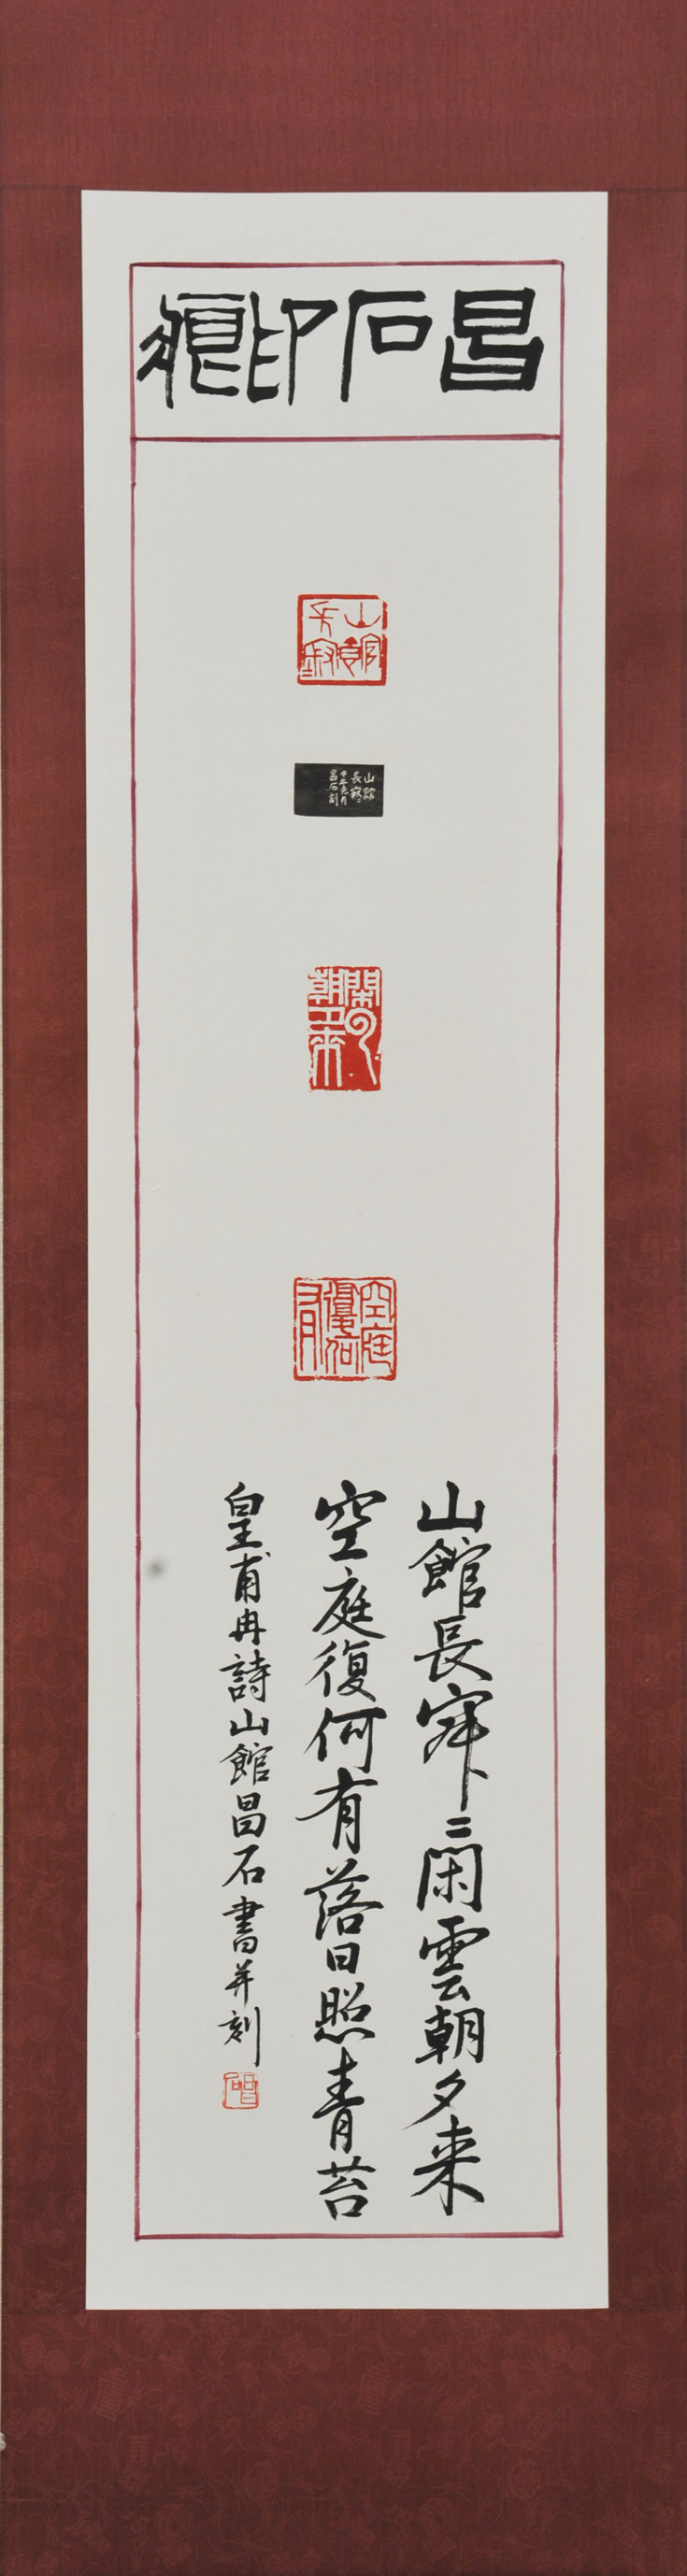 昌石印
山館長寂
山館
長寂寂
昌石刻
閑雲朝夕來
空庭復何有
山館長寂〻閑雲朝夕来
空庭復何有落日照青苔
皇甫冉詩山館昌石書并刻
昌石